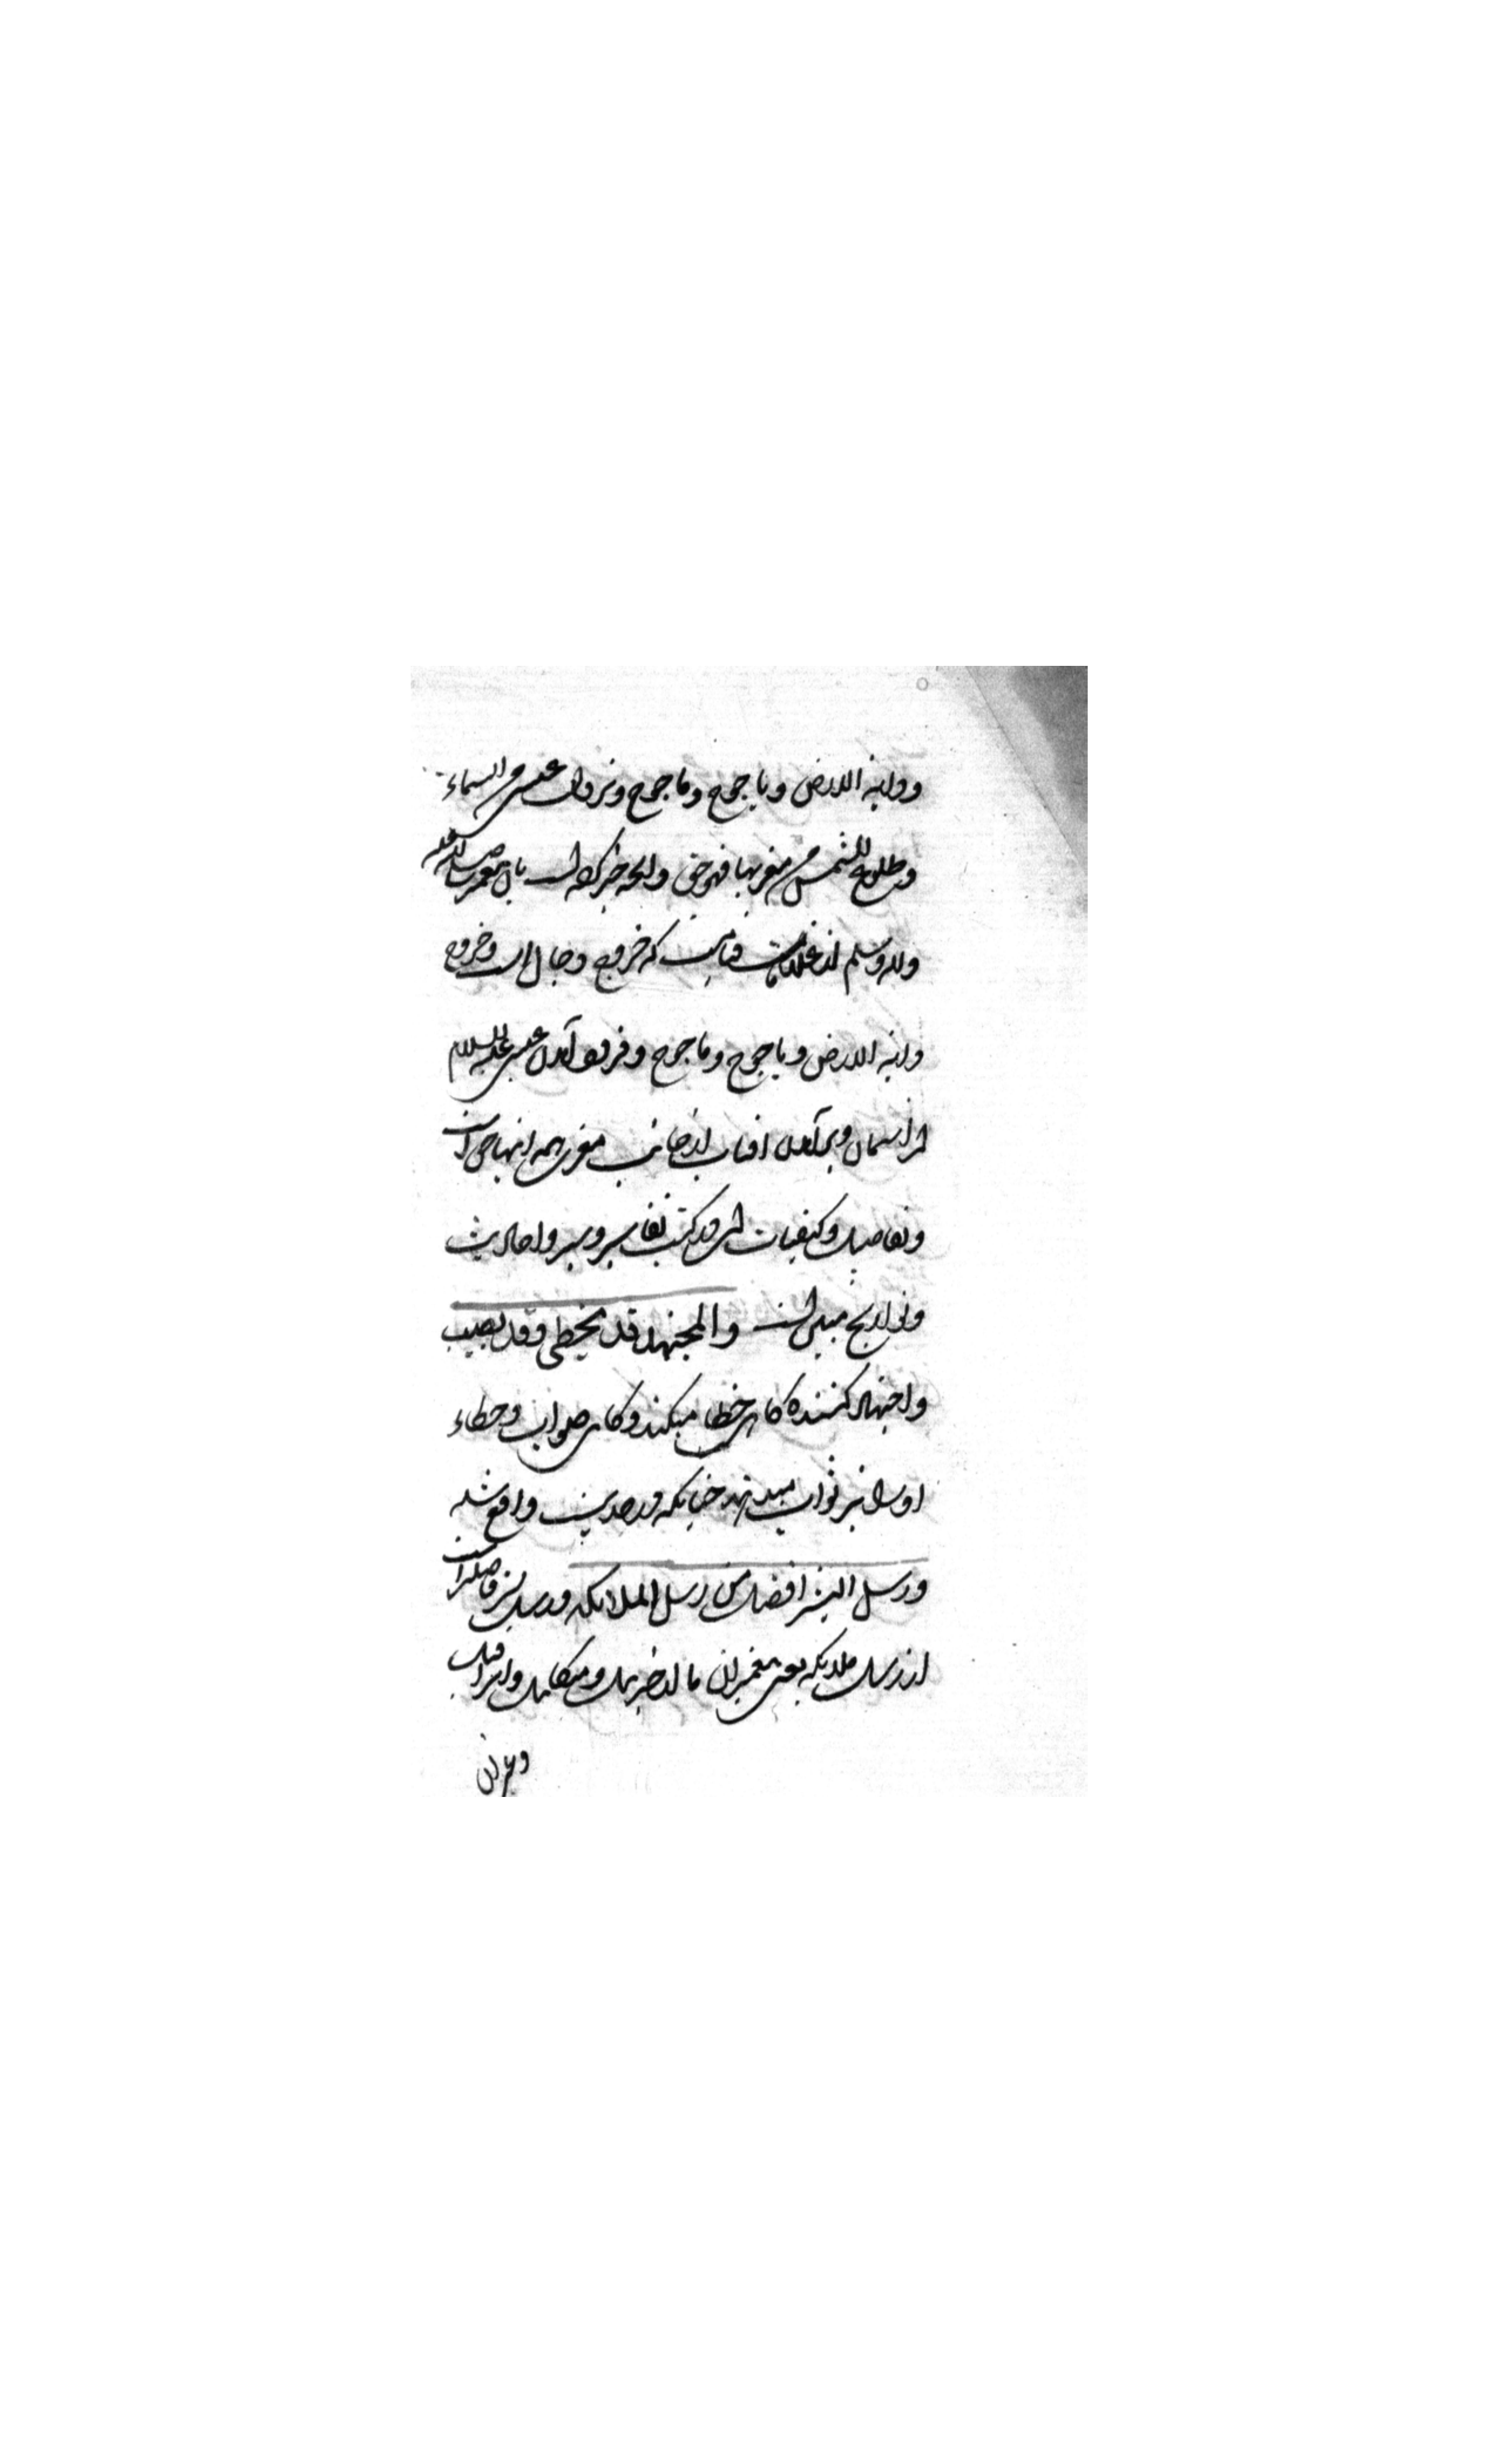 ودابة الارض ویاجوج وماجوج ونزول عیسی من السماء
وطلوع الشمس من مغربها فهو حق وانچه خبر کرده است بان پیغمبر صلی الله علیه
واله وسلم از علامات قیامت که خروج دجال است وخروج
دابة الارض ویاجوج وماجوج وفرود آمدن عیسی علیه السلام
از اسمان وبرآمدن افتاب از جانب مغرب همه اینها حق است
وتفاصیل وکیفیات این در کتب تفاسیر وسیر واحادیث
وتواریخ مبین است والمجتهد قد یخطی وقد یصیب
واجتهاد کننده کاهی خطا میکند وکاهی صواب وخطاء
اورا نیز ثواب میدهند چنانکه در حدیث واقع شده
ورسل البشر افضل من رسل الملائکه ورسل بشر فاضلتر است
از رسل ملایکه یعنی پیغمبران ما از جبریل ومیکائیل واسرافیل